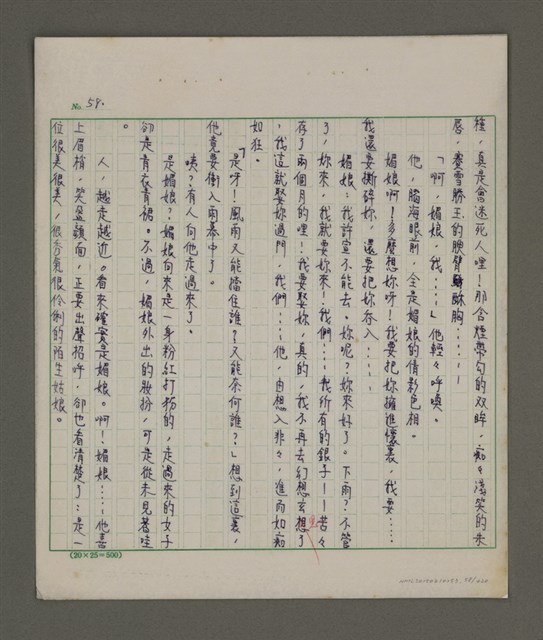 No. 58.
種，真是會迷死人哩！那含煙帶勾的双眸，痴々淺笑的朱
唇，賽雪勝玉的腴臂酥胸……！
「啊，媚娘，我……」他輕々呼喚。
他，腦海眼前，全是媚娘的倩影色相。
媚娘啊！多麼想妳呀！我要把妳擁進懷裏，我要……
我還要撕碎妳，還要把妳吞入……
媚娘：我許宣不能去。妳呢？妳來好了。下雨？不管
了，妳來，我就要妳來！我們……我所有的銀子——苦々
存了兩個月的哩！我要娶妳，真的，我不再去幻想玄想了
，我這就娶妳過門，我們……他，由想入非々，進而如痴
如狂。
「是呀！風雨又能擋住誰？又能奈何誰？」想到這裏，
他竟要衝入雨幕中了。
咦？有人向他走過來了。
是媚娘？媚娘向來是一身粉紅打扮的，走過來的女子
卻是青衣青裙。不過，媚娘外出的妝扮，可是從未見着哇
。
人，越走越近。看來確實是媚娘。啊！媚娘……他喜
上眉梢，笑盈顏面，正要出聲招呼，卻也看清楚了：是一
位很美很美，很秀氣很伶俐的陌生姑娘。
(20×25=500)